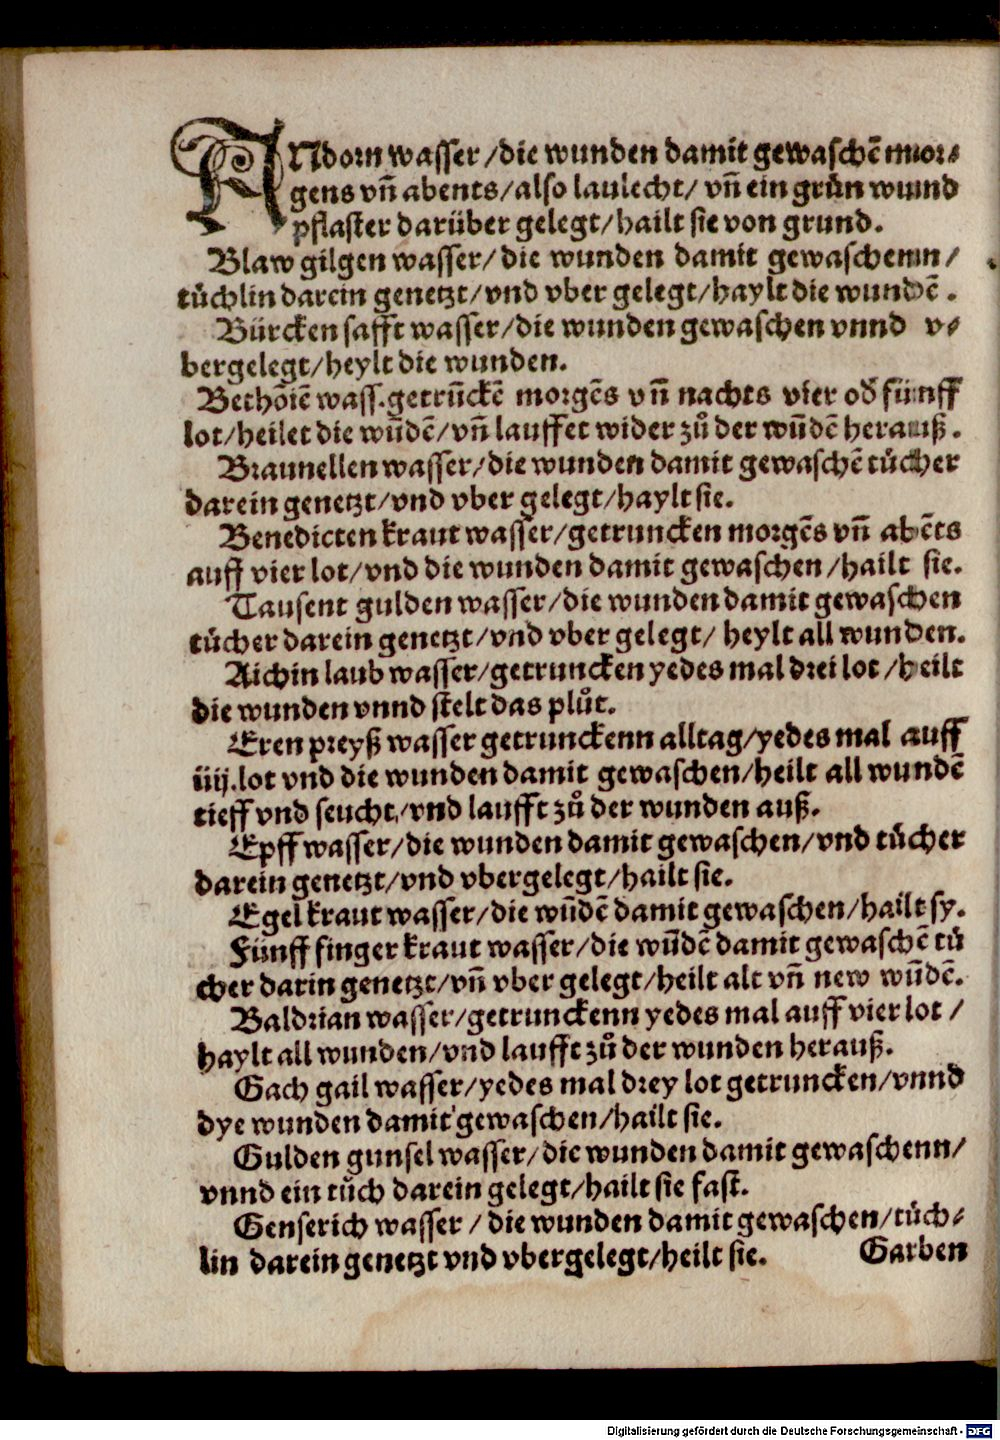 ANdorn wasser/die wunden damit gewaschē mor⸗
gens vñ abents/also laulecht/ vñ ein grůn wund
pflaster darüber gelegt/hailt sie von grund.
Blaw gilgen wasser/ die wunden damit gewaschenn/
tůchlin darein genetzt/vnd vber gelegt/haylt die wundē.
Bürcken safft wasser/die wunden gewaschen vnnd v⸗
bergelegt/heylt die wunden.
Bethōiē wass.getrūckē morgēs vñ nachts vier oď fünff
lot/heilet die wūdē/vñ lauffet wider zů der wūdē herauß.
Braunellen wasser/die wunden damit gewaschē tůcher
darein genetzt/vnd vber gelegt/haylt sie.
Benedicten kraut wasser/getruncken morgēs vñ abēts
auff vier lot/vnd die wunden damit gewaschen/hailt sie.
Tausent gulden wasser/die wunden damit gewaschen
tůcher darein genetzt/vnd vber gelegt/ heylt all wunden.
Aichin laub wasser/getruncken yedes mal drei lot/heilt
die wunden vnnd stelt das plůt.
Eren preyß wasser getrunckenn alltag/yedes mal auff
iiij.lot vnd die wunden damit gewaschen/heilt all wundē
tieff vnd seucht/vnd laufft zů der wunden auß.
Epff wasser/die wunden damit gewaschen/vnd tůcher
darein genetzt/vnd vbergelegt/hailt sie.
Egel kraut wasser/die wūdē damit gewaschen/hailt sy.
Fünff finger kraut wasser/die wūdē damit gewaschē tů
cher darin genetzt/vñ vber gelegt/heilt alt vñ new wūdē.
Baldrian wasser/getrunckenn yedes mal auff vier lot/
haylt all wunden/vnd laufft zů der wunden herauß.
Gach gail wasser/yedes mal drey lot getruncken/vnnd
dye wunden damit gewaschen/hailt sie.
Gulden gunsel wasser/die wunden damit gewaschenn/
vnnd ein tůch darein gelegt/hailt sie fast.
Genserich wasser/ die wunden damit gewaschen/tůch⸗
lin darein genetzt vnd vbergelegt/heilt sie. Garben
Digitalisierung gefördert durch die Deutsche Forschungsgemeinschaft - DFG